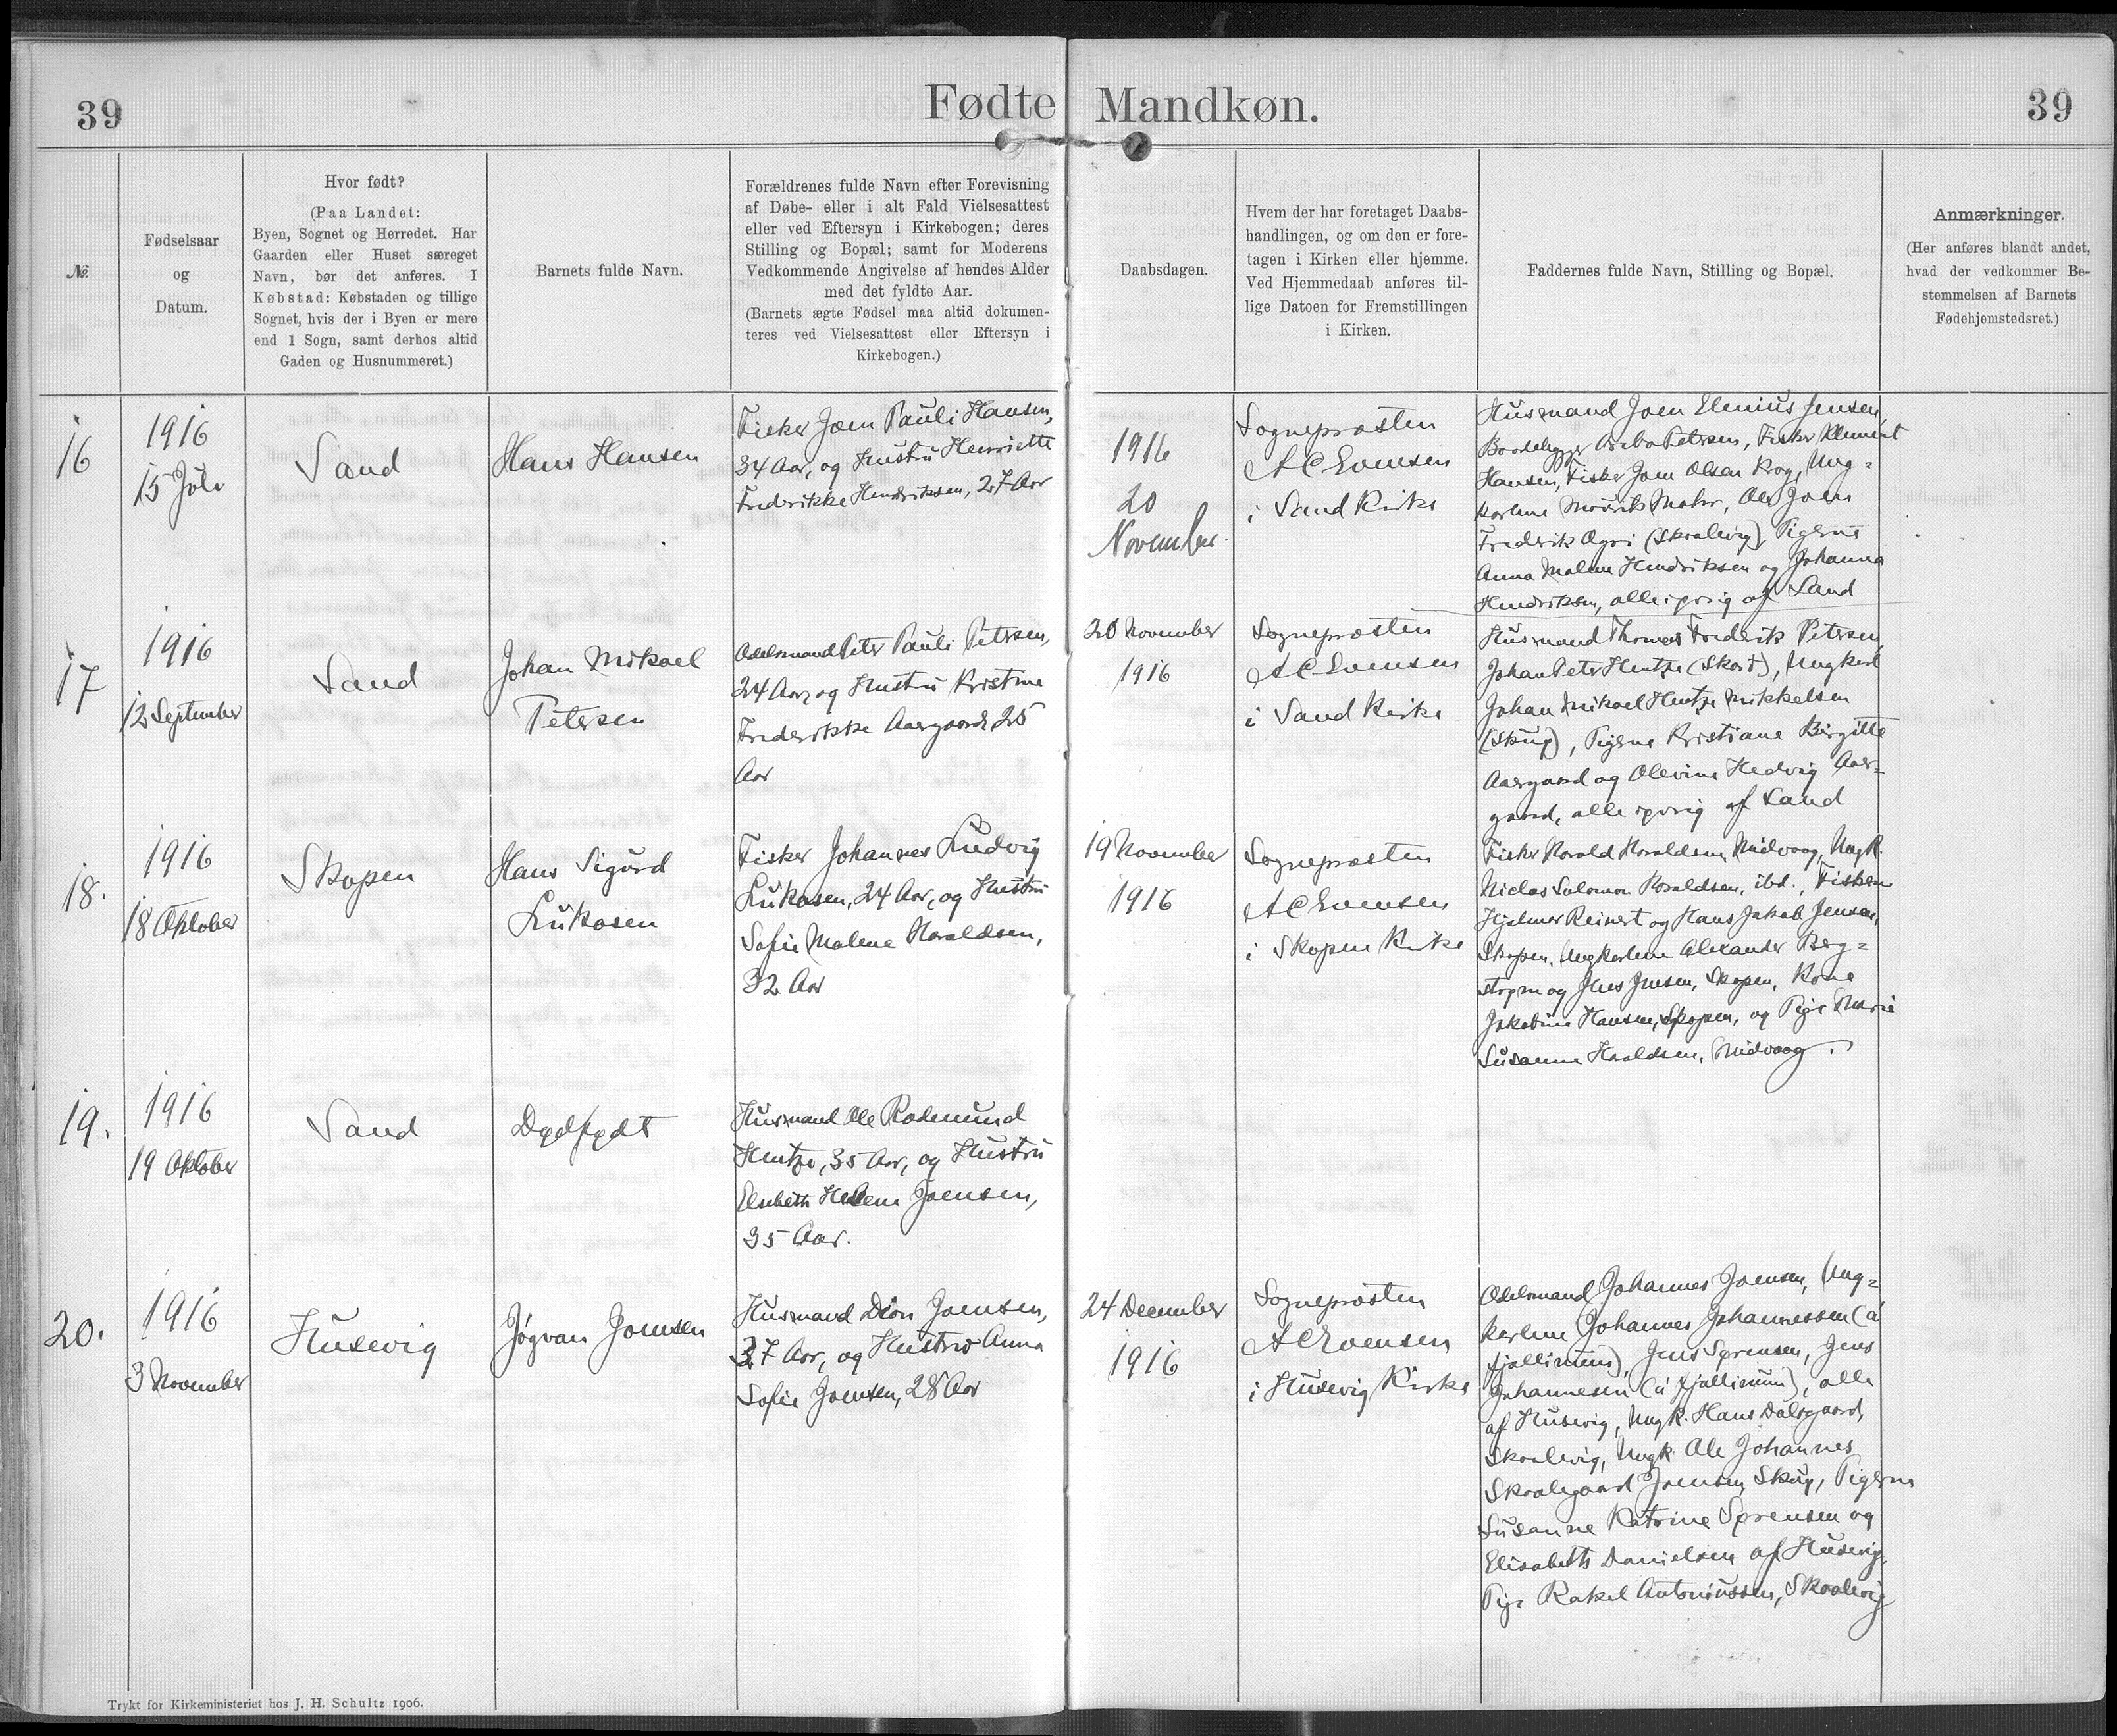 39
Fødte Mandkøn.
39
№.
Fødselsaar
og
Datum.
Hvor født?
(Paa Landet:
Byen, Sognet og Herredet. Har
Gaarden eller Huset særeget
Navn, bør det anføres. I
Købstad: Købstaden og tillige
Sognet, hvis der i Byen er mere
end 1 Sogn, samt derhos altid
Gaden og Husnummeret.)
Barnets fulde Navn.
Forældrenes fulde Navn efter Forevisning
af Døbe- eller i alt Fald Vielsesattest
eller ved Eftersyn i Kirkebogen; deres
Stilling og Bopæl; samt for Moderens
Vedkommende Angivelse af hendes Alder
med det fyldte Aar.
(Barnets ægte Fødsel maa altid dokumen-
teres ved Vielsesattest eller Eftersyn i
Kirkebogen.)
Daabsdagen.
Hvem der har foretaget Daabs-
handlingen, og om den er fore-
tagen i Kirken eller hjemme.
Ved Hjemmedaab anføres til-
lige Datoen for Fremstillingen
i Kirken.
Faddernes fulde Navn, Stilling og Bopæl.
Anmærkninger.
(Her anføres blandt andet,
hvad der vedkommer Be-
stemmelsen af Barnets
Fødehjemstedsret.)
16
1916
15 Juli
Sand
Hans Hansen
Fisker Joen Pauli Hansen,
34 Aar, og Hustru Henriette
Frederikke Hendriksen, 27 Aar
1916
20
November.
Sognepræsten
A C Evensen
i Sand Kirke
Husmand Joen Elenius Jensen,
Petersen, Fisker Klement
Hansen, Fisker Joen Olsen Ung=
karlene Mourits Mohr, Ole Joen
Frederik (Skaalevig), Pigerne
Anna Malene Hendriksen og Johanna
Hendriksen, alle øvrig af Sand
17
1916
12 September
Sand
Johan Mikael
Petersen
Odelsmand Peter Pauli Petersen,
24 Aar, og Hustru Kristine
Frederikke Aargaard, 25
Aar
20 November
1916
Sognepræsten
A C Evensen
i Sand Kirke
Husmand Thomas Frederik Petersen,
Johan Peter Hentze (Skort), Ungkarl
Johan Mikael Hentze Mikkelsen
(Skug), Pigerne Kristiane Birgitte
Aargaard og Olevine Hedvig Aar=
gaard, alle øvrig af Sand
18.
1916
18 Oktober
Skopen
Hans Sigurd
Lukasen
Fisker Johannes Ludvig
Lukasen, 24 Aar, og Hustru
Sofie Malene Haraldsen,
32 Aar
19 November
1916
Sognepræsten
A C Evensen
i Skopen Kirke
Fisker Harald Haraldsen, Midvaag, Ungk.
Niclas Salomon Haraldsen, ibd., Fiskerne
Hjalmar Reinert og Hans Jakob Jensen,
Skopen, Ungkarlene Alexander Berg=
strøm og Jens Jensen, Skopen, Kone
Jakobine Hansen, Skopen, og Pige Maria
Susanne Haraldsen, Midvaag.
19.
1916
19 Oktober
Sand
Dødfødt
Husmand Ole Rasmund
Hentze, 35 Aar, og Hustru
Elsebeth Helene Joensen,
35 Aar.
20.
1916
3 November
Husevig
Jógvan Joensen
Husmand Dion Joensen,
37 Aar, og Hustru Anna
Sofie Joensen, 28 Aar
24 December
1916
Sognepræsten
A C Evensen
i Husevig Kirke
Odelsmand Johannes Joensen, Ung=
karlene Johannes Johannessen (á
fjallinum), Jens Sørensen, Jens
Johannesen (á fjallinum), alle
af Husevig, Ungk. Hans Dalsgaard,
Skaalevig, Ungk. Ole Johannes
Skaalegaard Joensen, Skug, Pigerne
Susanne Katrine Sørensen og
Elisabeth Danielsen af Husevig,
Pige Rakel Antoniussen, Skaalevig
Trykt for Kirkeministeriet hos J. H. Schultz 1906.